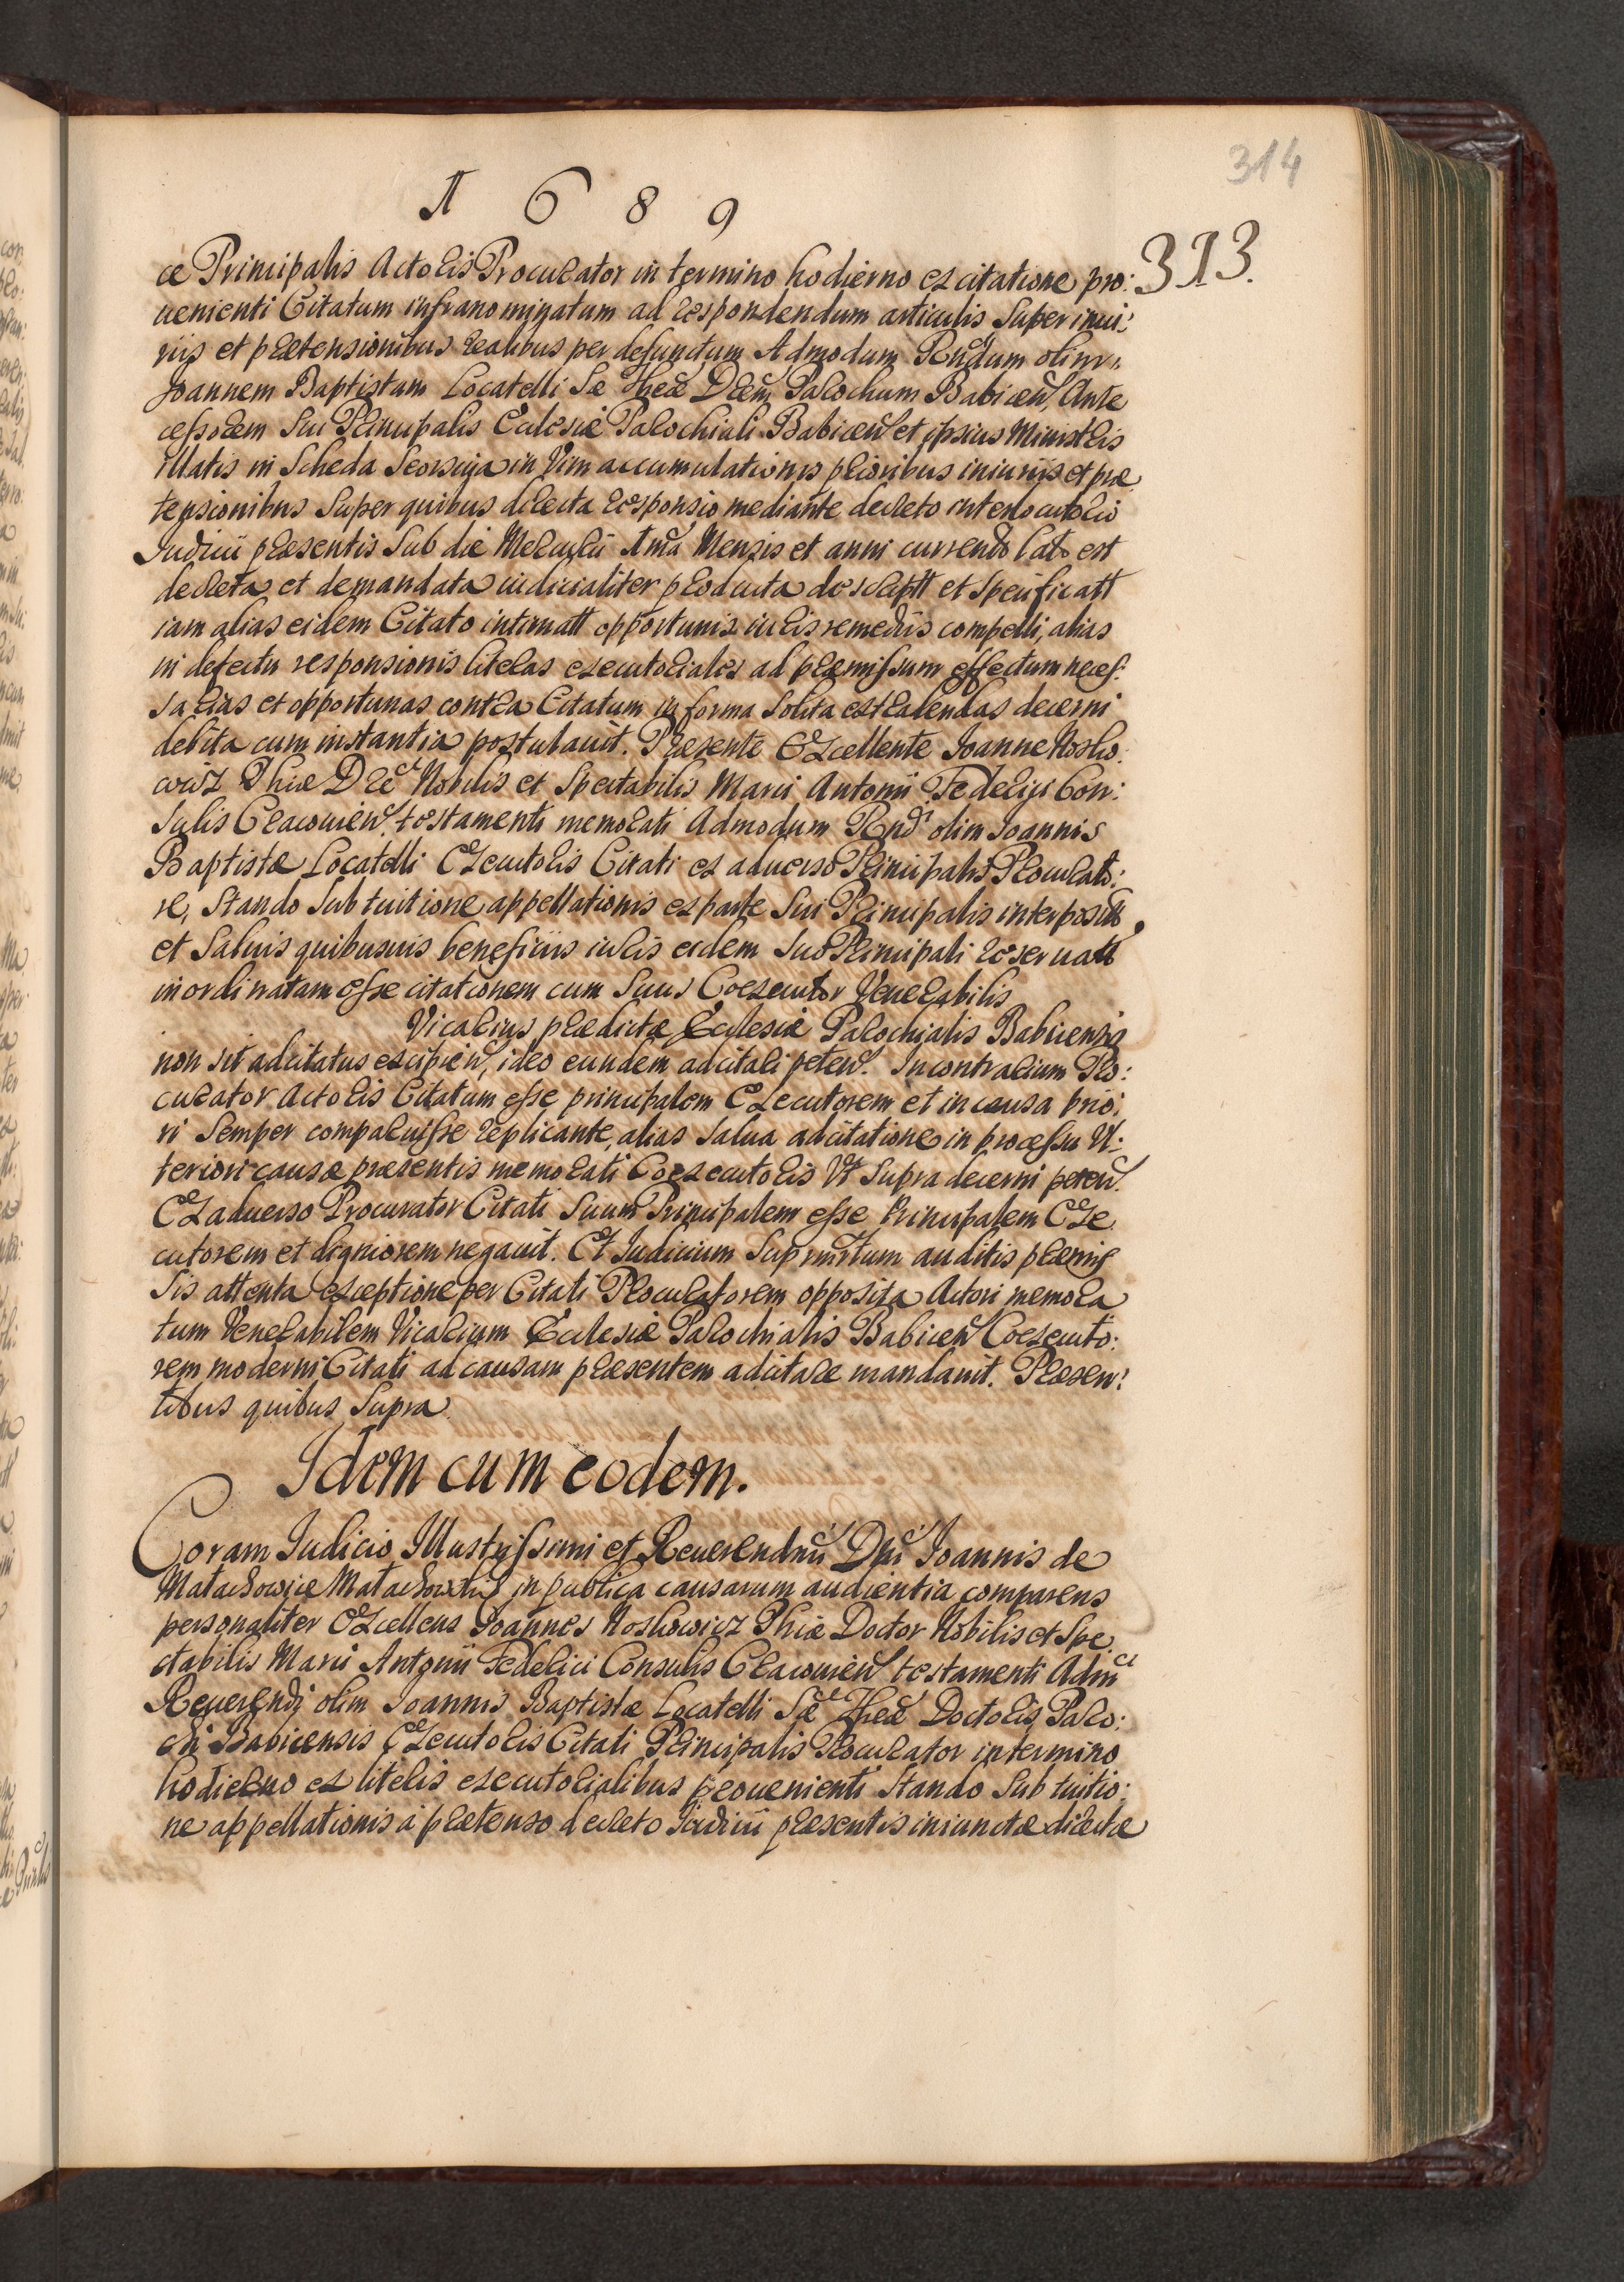 314
1 6 8 9
313.
æ Principalis Actoris Procurator in termino hodierno ex citatione pro:
uenienti Citatum infranominatum ad respondendum articulis super iniu:
rijs et prætensionibus realibus per defunctum Admodum Rndum olim
Joannem Baptistam Locatelli Sæ Theæ Drem Parochum Babicen, Ante
cessorem sui Principalis Ecclesiæ Parochiali Babicen et ipsius Ministris
illatis in Scheda Seorsiua in Vim accumulationis prioribus iniurijs et præ
tensionibus super quibus directa responsio mediante decreto interlocutorio
Iudicii præsentis sub die Mercurii 1ma Mensis et anni currends lato est
decreta et demandata iudicialiter producta descriptt et specificatt
iam alias eidem Citato intimatt opportunis iuris remediis compelli, alias
in defectu responsionis literas executoriales ad præmissum effectum neces:
sarias et opportunas contra Citatum in forma solita extrahendas decerni
debita cum instantia postulauit. Præsente Excellente Joanne Kosko:
wicz Phiæ Dre Nobilis et Spectabilis Marci Antonii Federici Con:
sulis Cracouien testamenti memorati Admodum Rndi olim Joannis
Baptistæ Locatelli Executoris Citati ex aduerso Principalis Procurato:
re, Stando sub tuitione appellationis ex parte sui Principalis interposittt
et saluis quibusuis beneficiis iuris eidem suo Principali reseruatt
inordinatam esse citationem cum suus Coexecutor Venerabilis
Vicarius prædictæ Ecclesiæ Parochialis Babicensis
non sit adcitatus excipien, ideo eundem adcitari peten. In contrarium Pro:
curator Actoris Citatum esse principalem Executorem et in causa prio:
ri semper comparuisse replicante, alias salua adcitatione in processu Ul:
teriori causæ præsentis memorati Coexecutoris Vt supra decerni peten.
Ex aduerso Procurator Citati suum Principalem esse Principalem Exe
cutorem et digniorem negauit. Et Iudicium suprascriptum auditis præmis
sis attenta exceptione per Citati Procuratorem opposita Actori memora
tum Venerabilem Vicarium Ecclesiæ Parochialis Babicen Coexecuto:
rem moderni Citati ad causam præsentem adcitare mandauit. Præsen:
tibus quibus supra
Idem cum eodem.
Coram Iudicio Illustrissimi et Reuerendmi Dni Joannis de
Małachowice Małachowski in publica causarum audientia comparens
personaliter Excellens Joannes Koskowicz Phiæ Doctor Nobilis et Spe
ctabilis Marci Antonii Federici Consulis Cracouien testamenti Adm
Reuerendi olim Joannis Baptistæ Locatelli Sæ Theæ Doctoris Paro:
chi Babicensis Executoris Citati Principalis Procurator in termino
hodierno ex literis executorialibus prouenienti Stando sub tuitio:
ne appellationis a prætenso decreto Iudicii præsentis iniunctæ directæ